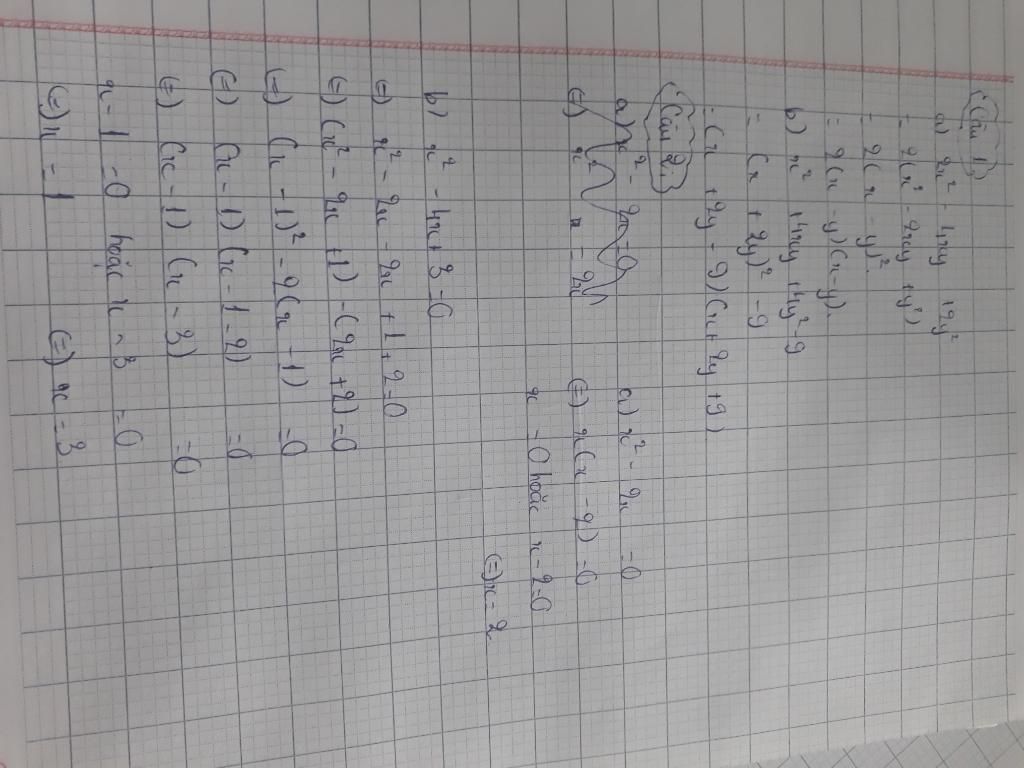 Câu 1
a) 2x² - 4xy + 2y²
= 2(x² - 2xy + y²)
= 2(x - y)²
= 2(x - y)(x - y)
b) x² + 4xy + 4y² - 9
= (x + 2y)² - 9
= (x + 2y - 9)(x + 2y + 9)
Câu 2
a) x² - 2x = 0
(=) x(x - 2) = 0
x = 0 hoặc x - 2 = 0
(=) x = 2
b) x² - 4x + 3 = 0
(=) x² - 2x - 2x + 1 + 2 = 0
(=) (x² - 2x + 1) - (2x + 2) = 0
(=) (x - 1)² - 2(x - 1) = 0
(=) (x - 1)(x - 1 - 2) = 0
(=) (x - 1)(x - 3) = 0
x - 1 = 0 hoặc x - 3 = 0
(=) x = 1 (=) x = 3